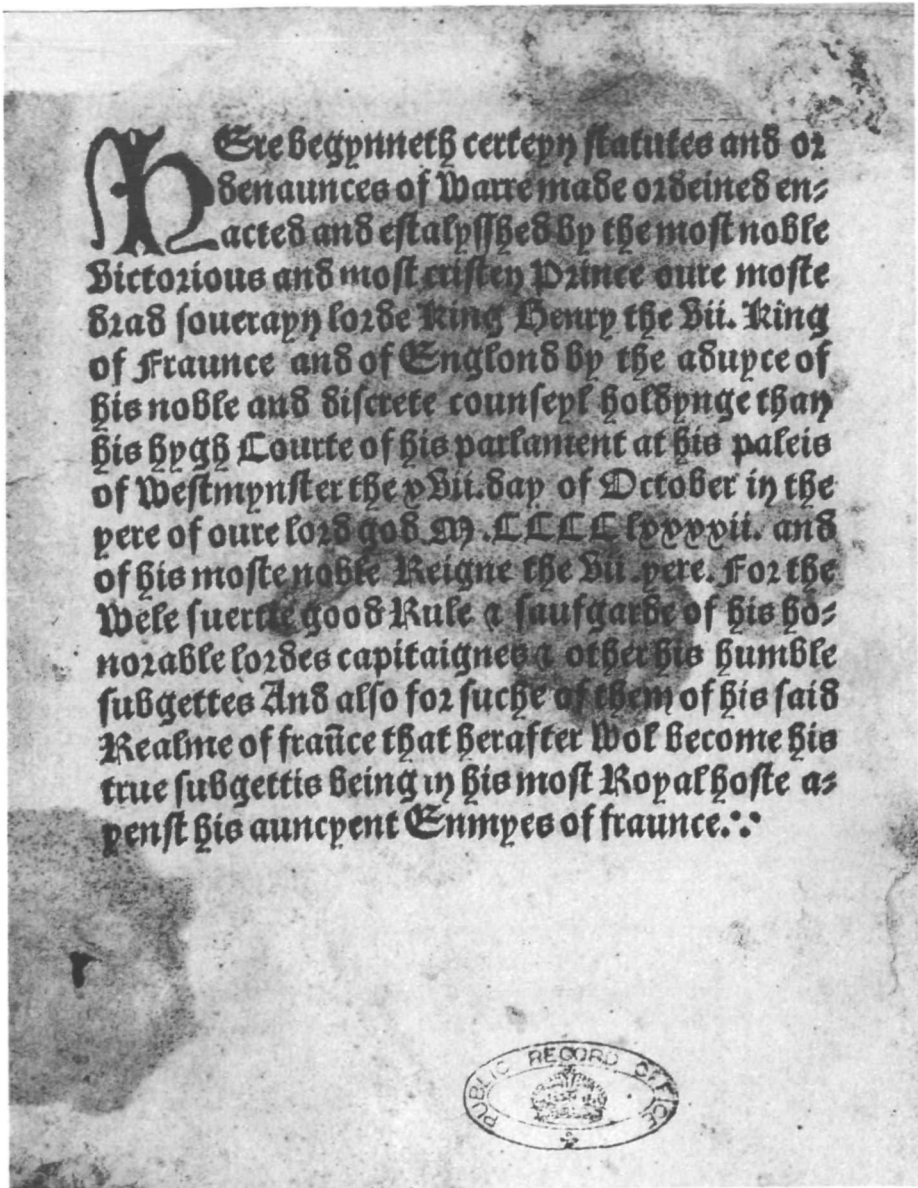 HEre begynneth certeyn statutes and or
denaunces of Warre made ordeined en⸗
acted and estalysshed by the most noble
victorious and most cristen Prince oure moste
drad souerayn lorde King Henry the vii. King
of Fraunce and of Englond by the aduyce of
his noble and discrete counseyl holdynge than
his hygh Courte of his parlament at his paleis
of Westmynster the xvii. day of October in the
yere of oure lord god M .CCCC lxxxxii. and
of his moste noble Reigne the vii .yere. For the
Wele suertie good Rule & saufgarde of his ho⸗
norable lordes capitaignes & other his humble
subgettes And also for suche of them of his said
Realme of frañce that herafter Wol become his
true subgettis being in his most Royal hoste a⸗
yenst his auncyent Enmyes of fraunce.
PUBLIC RECORD OFFICE